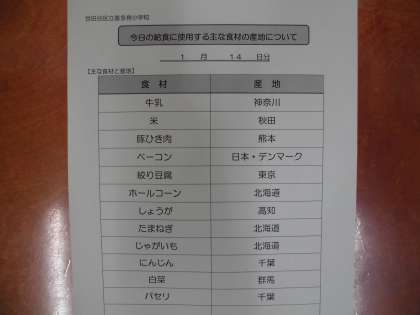 今日の給食に使用する主な食材の産地について
1 月 14 日分
【主な食材と産地】
食 材 産 地
牛乳 神奈川
米 秋田
豚ひき肉 熊本
ベーコン 日本・デンマーク
絞り豆腐 東京
ホールコーン 北海道
しょうが 高知
たまねぎ 北海道
じゃがいも 北海道
にんじん 千葉
白菜 群馬
パセリ 千葉